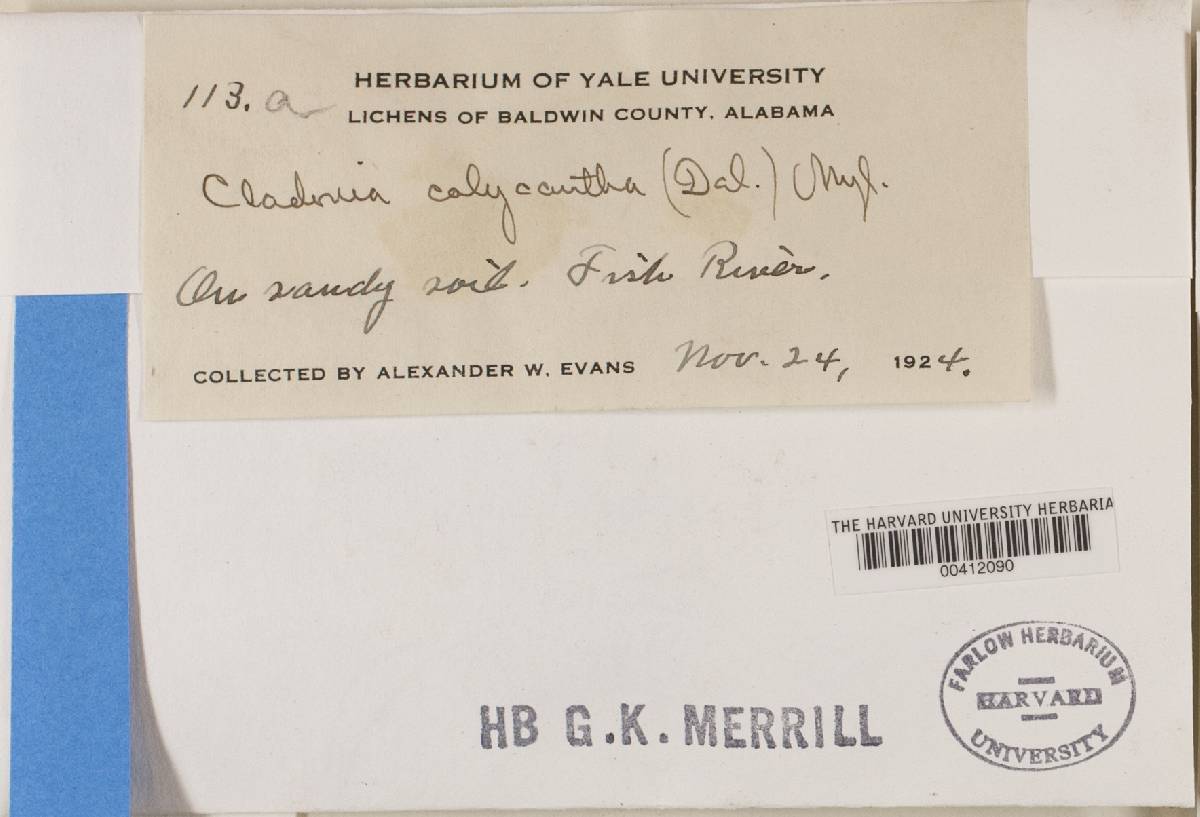 113. a
HERBARIUM OF YALE UNIVERSITY
LICHENS OF BALDWIN COUNTY, ALABAMA
Cladonia calycantha (Del.) Nyl.
On sandy soil. Fish River.
COLLECTED BY ALEXANDER W. EVANS Nov. 24, 1924.
THE HARVARD UNIVERSITY HERBARIA
00412090
FARLOW HERBARIUM
HARVARD
UNIVERSITY
HB G.K. MERRILL